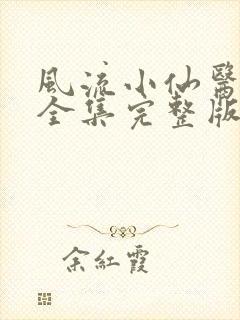 風流小仙醫
全集完整版
余紅霞